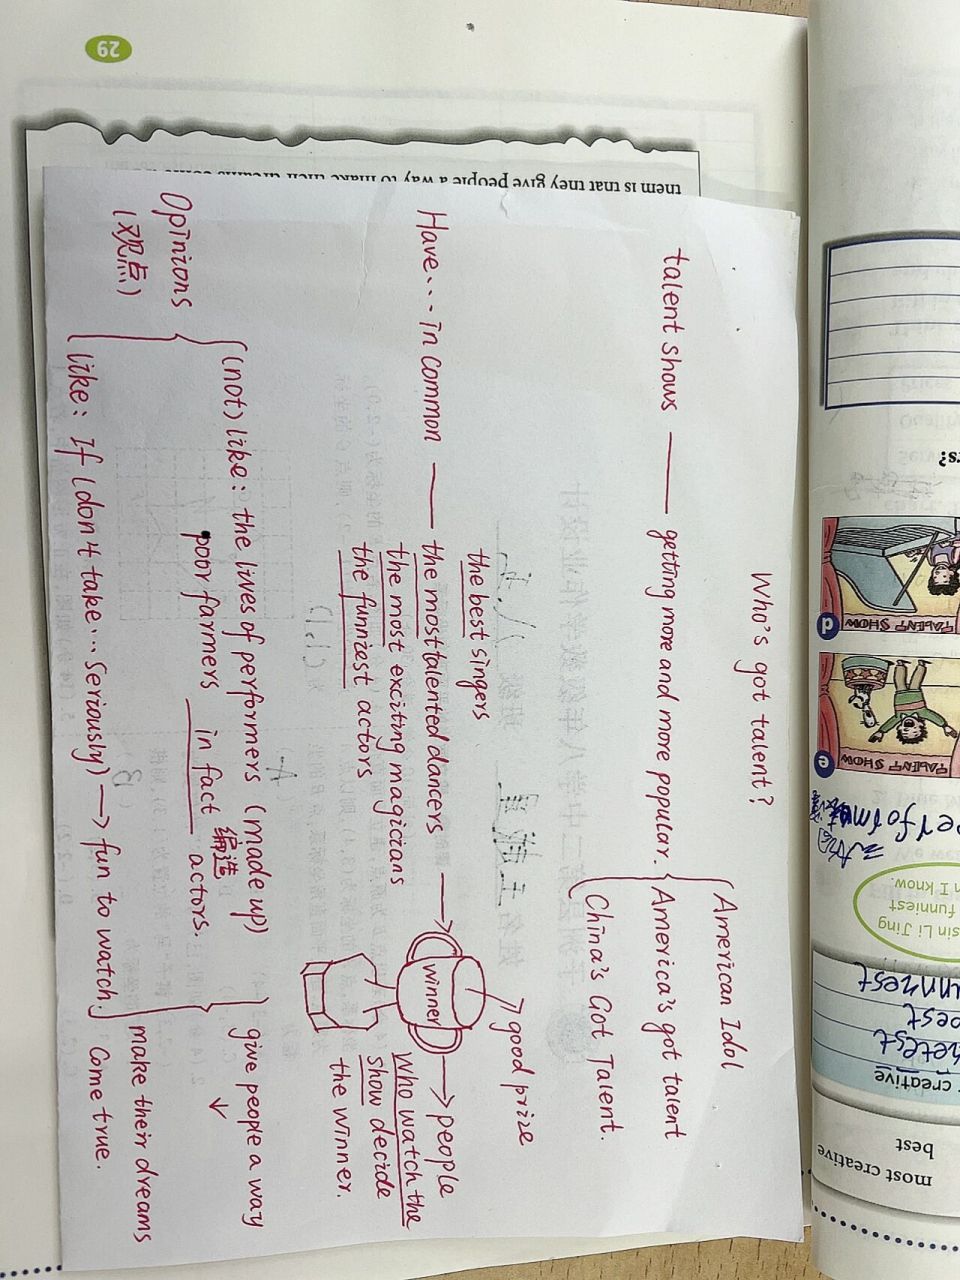 Who's got talent?
talent shows — getting more and more popular.
American Idol
America's got talent
China's Got Talent.
Have... in common —
the best singers
the most talented dancers
the most exciting magicians
the funniest actors
winner
good prize
people
who watch the
show decide
the winner.
Opinions
(观点)
(not) like: the lives of performers (made up)
编造
poor farmers in fact actors.
like: If (don't take... seriously) → fun to watch.
give people a way
make their dreams
come true.
them is that they give people a way to make their dreams come
29
TALENT SHOW
d
TALENT SHOW
e
n I know
funniest
sin Li Jing
creative
best
most creative